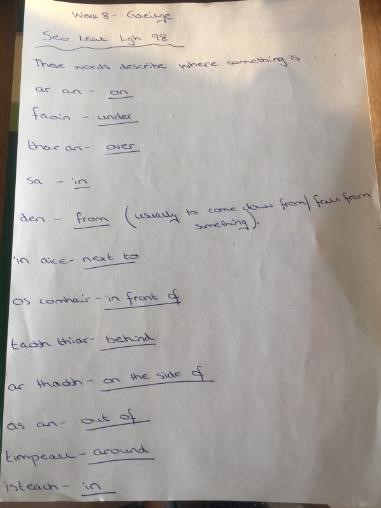 Week 8 - Gaeilge
Seo Leat Lgh 98
These words describe where something is .....
ar an - on
faoin - under
thar an - over
sa - in
den - from (usually to come down from/fall from
something).
in aice - next to
os comhair - in front of
taobh thiar - behind
ar thaobh - on the side of
as an - out of
timpeall - around
isteach - in